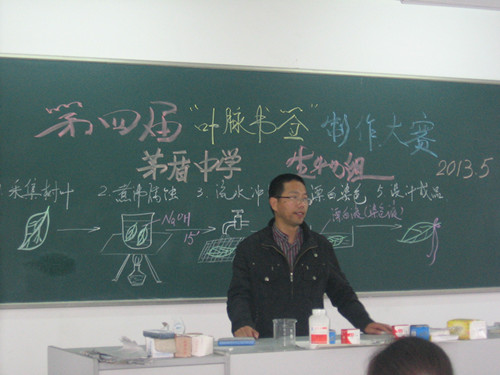 第四届"叶脉书签"制作大赛
茅盾中学 生物组 2013.5
1.采集树叶 2.煮沸腐蚀 3.流水冲 漂白染色 5.设计成品
NaOH
15'
漂白液(染色液)